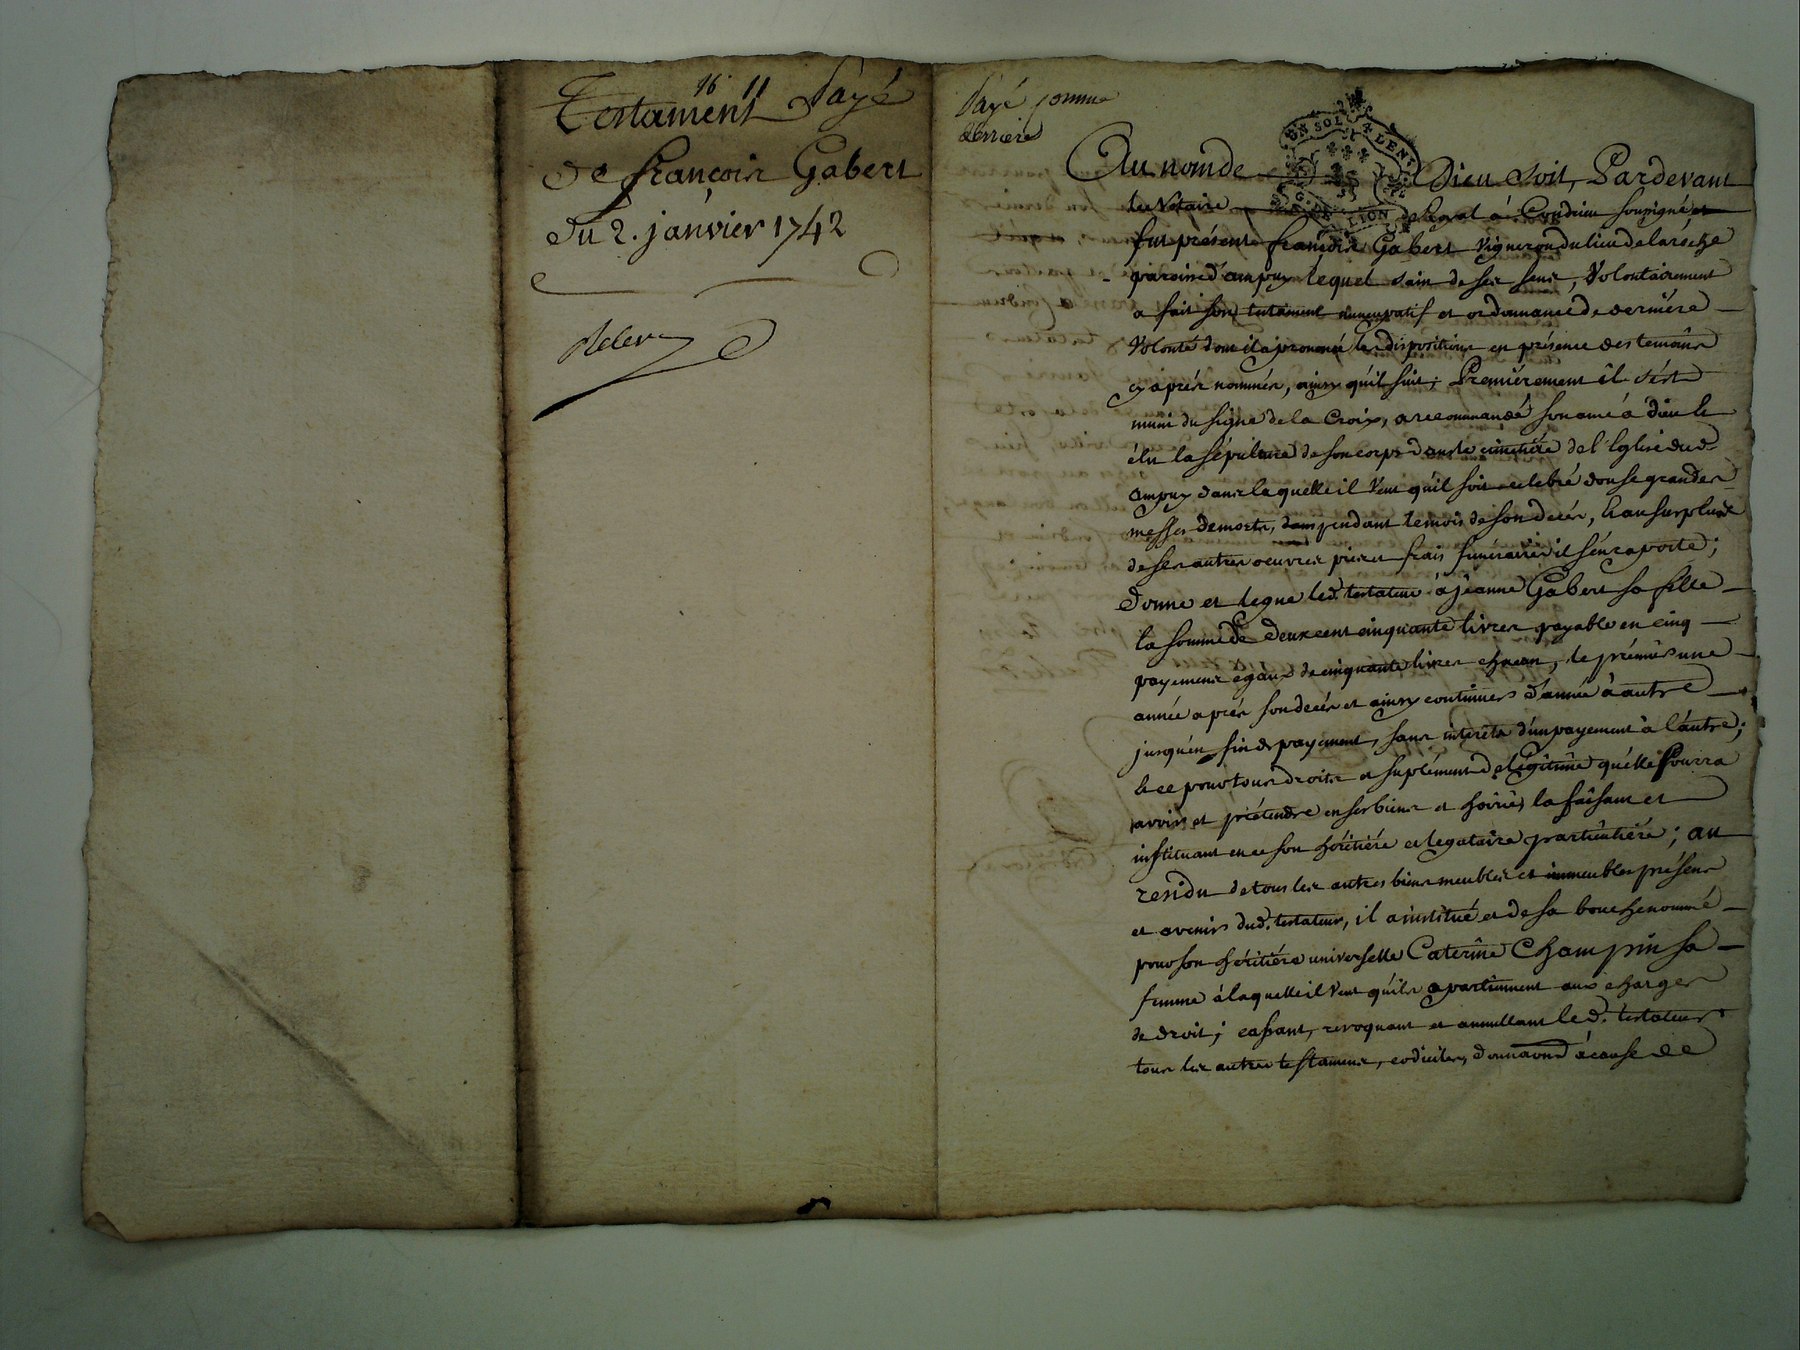 16 11
Testament Payé
de françois Gabert
du 2. janvier 1742
Payé comme
derriere
UN SOL 4 DEN
G. DE LION
Au nom de Dieu soit, Pardevant
les Notaire Royal à Condrieu soussigné et
fut présent françois Gabert Vigneron du lieu de la réche
paroisse d'ampuy lequel sain de ses sens, Volontairement
a fait son testament nuncupatif et ordonnance de derniére
Volonté dont il a prononcé les dispositions en présence des temoins
cy aprés nommés, ainsy qu'il suit; Premiérement il s'ést
muni du signe de la Croix, a recommandé son ame à dieu &
élu la sépulture de son corps dans le cimetiére de l'Eglise dud.
ampuy dans laquelle il Veut qu'il soit celebré douse grandes
messes de morts, pendant le mois de son decés, & au surplus
de ses autres oeuvres pies et frais funéraires il s'én raporte;
Donne et legue led. testateur à jéanne Gabert sa fille
la somme de deux cent cinquante livres payable en cinq
payemens égaux de cinquante livres chacun, le prémier une
année aprés son decés et ainsy continuer d'année à autre
jusqu'én fin de payement, sans interéts d'un payement à l'autre;
& ce pour tous droits et suplément de légitime qu'élle Pourra
avoir et prétendre en ses biens et hoirie, la faisant et
instituant en ce son héritiére et legataire particuliére; au
residu de tous les autres biens meubles et immeubles présens
et avenir dud. testateur, il a institué et de sa bouche nommé
pour son héritiére universelle Caterine Champin sa
femme à laquelle il Veut qu'ils apartiennent aux charges
de droit; cassant, revoquant et annullant led. testateur
tous les autres testamens, codiciles, donnaond à cause de